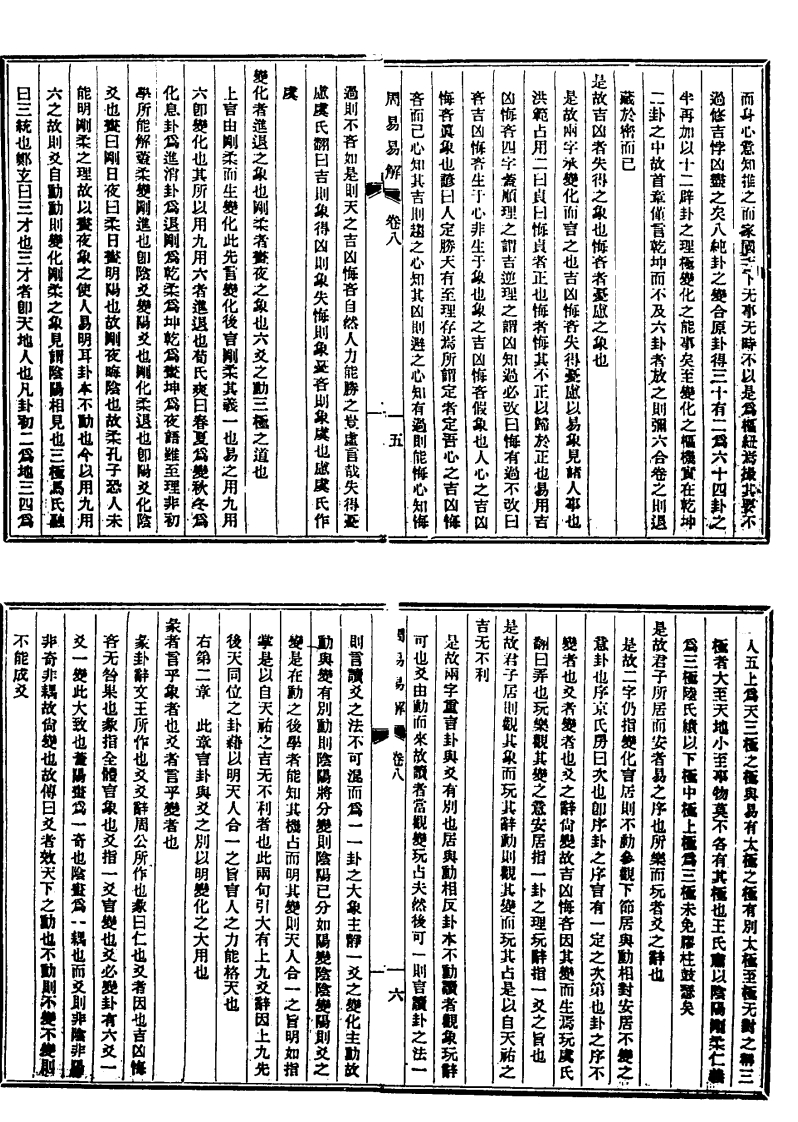 而身心意知推之而家國天下无事无時不以是爲樞紐焉撮其要不
過修吉悖凶盡之矣八純卦之變合原卦得三十有二爲六十四卦之
半再加以十二辟卦之理極變化之能事矣至變化之樞機實在乾坤
二卦之中故首章僅言乾坤而不及六卦者放之則彌六合卷之則退
藏於密而已
是故吉凶者失得之象也悔吝者憂慮之象也
是故兩字承變化而言之也吉凶悔吝失得憂慮以易象見諸人事也
洪範占用二曰貞曰悔貞者正也悔者悔其不正以歸於正也易用吉
凶悔吝四字蓋順理之謂吉逆理之謂凶知過必改曰悔有過不改曰
吝吉凶悔吝生于心非生于象也象之吉凶悔吝假象也人心之吉凶
悔吝眞象也諺曰人定勝天有至理存焉所謂定者定吾心之吉凶悔
吝而已心知其吉則趨之心知其凶則避之心知有過則能悔心知悔
周易易解 卷八 五
過則不吝如是則天之吉凶悔吝自然人力能勝之豈虛言哉失得憂
慮虞氏翻曰吉則象得凶則象失悔則象憂吝則象虞也慮虞氏作
虞
變化者進退之象也剛柔者晝夜之象也六爻之動三極之道也
上言由剛柔而生變化此先言變化後言剛柔其義一也易之用九用
六卽變化也其所以用九用六者進退也荀氏爽曰春夏爲變秋冬爲
化息卦爲進消卦爲退剛爲乾柔爲坤乾爲晝坤爲夜語雖至理非初
學所能解蓋柔變剛進也卽陰爻變陽爻也剛化柔退也卽陽爻化陰
爻也晝曰剛日夜曰柔日晝明陽也故剛夜晦陰也故柔孔子恐人未
能明剛柔之理故以晝夜象之使人易明耳卦本不動也今以用九用
六之故則爻自動動則變化剛柔之象見謂陰陽相見也三極馬氏融
曰三統也鄭玄曰三才也三才者卽天地人也凡卦初二爲地三四爲
人五上爲天三極之極與易有太極之極有別太極至極无對之稱三
極者大至天地小至事物莫不各有其極也王氏肅以陰陽剛柔仁義
爲三極陸氏績以下極中極上極爲三極未免膠柱鼓瑟矣
是故君子所居而安者易之序也所樂而玩者爻之辭也
是故二字仍指變化言居則不動參觀下節居與動相對安居不變之
意卦也序京氏房曰次也卽序卦之序言有一定之次第也卦之序不
變者也爻者變者也爻之辭尙變故吉凶悔吝因其變而生焉玩虞氏
翻曰弄也玩樂觀其變之意安居指一卦之理玩辭指一爻之旨也
是故君子居則觀其象而玩其辭動則觀其變而玩其占是以自天祐之
吉无不利
是故兩字重言卦與爻有別也居與動相反卦本不動讀者觀象玩辭
可也爻由動而來故讀者當觀變玩占夫然後可一則言讀卦之法一
周易易解 卷八 六
則言讀爻之法不可混而爲一一卦之大象主靜一爻之變化主動故
動與變有別動則陰陽將分變則陰陽已分如陽變陰陰變陽則爻之
變是在動之後學者能知其機占而明其變則天人合一之旨明如指
掌是以自天祐之吉无不利者也此兩句引大有上九爻辭因上九先
後天同位之卦藉以明天人合一之旨言人之力能格天也
右第二章 此章言卦與爻之別以明變化之大用也
彖者言乎象者也爻者言乎變者也
彖卦辭文王所作也爻爻辭周公所作也彖曰仁也爻者因也吉凶悔
吝无咎果也彖指全體言象也爻指一爻言變也爻必變卦有六爻一
爻一變此大致也蓋陽畫爲一奇也陰畫爲一耦也而爻則非陰非陽
非奇非耦故尙變也故傳曰爻者效天下之動也不動則不變不變則
不能成爻